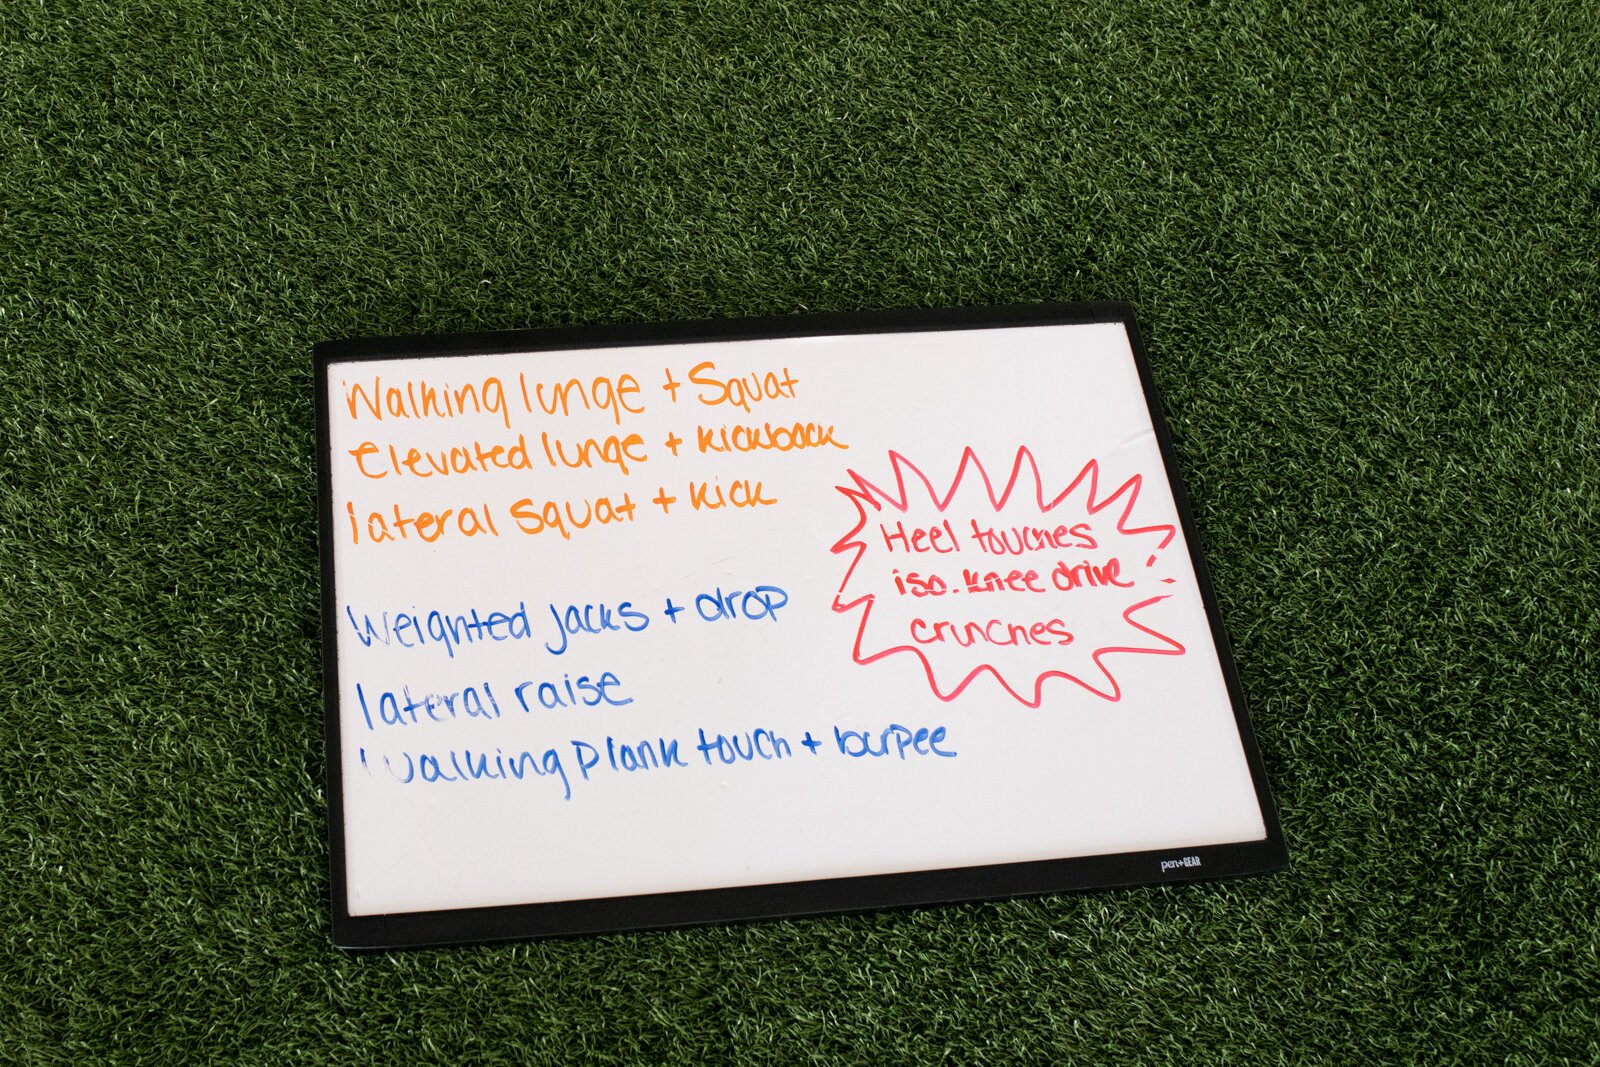 Walking lunge + Squat
Elevated lunge + kickback
lateral squat + kick
Weighted jacks + drop
lateral raise
Walking plank touch + burpee
Heel touches
iso. knee drive
crunches
pen+GEAR